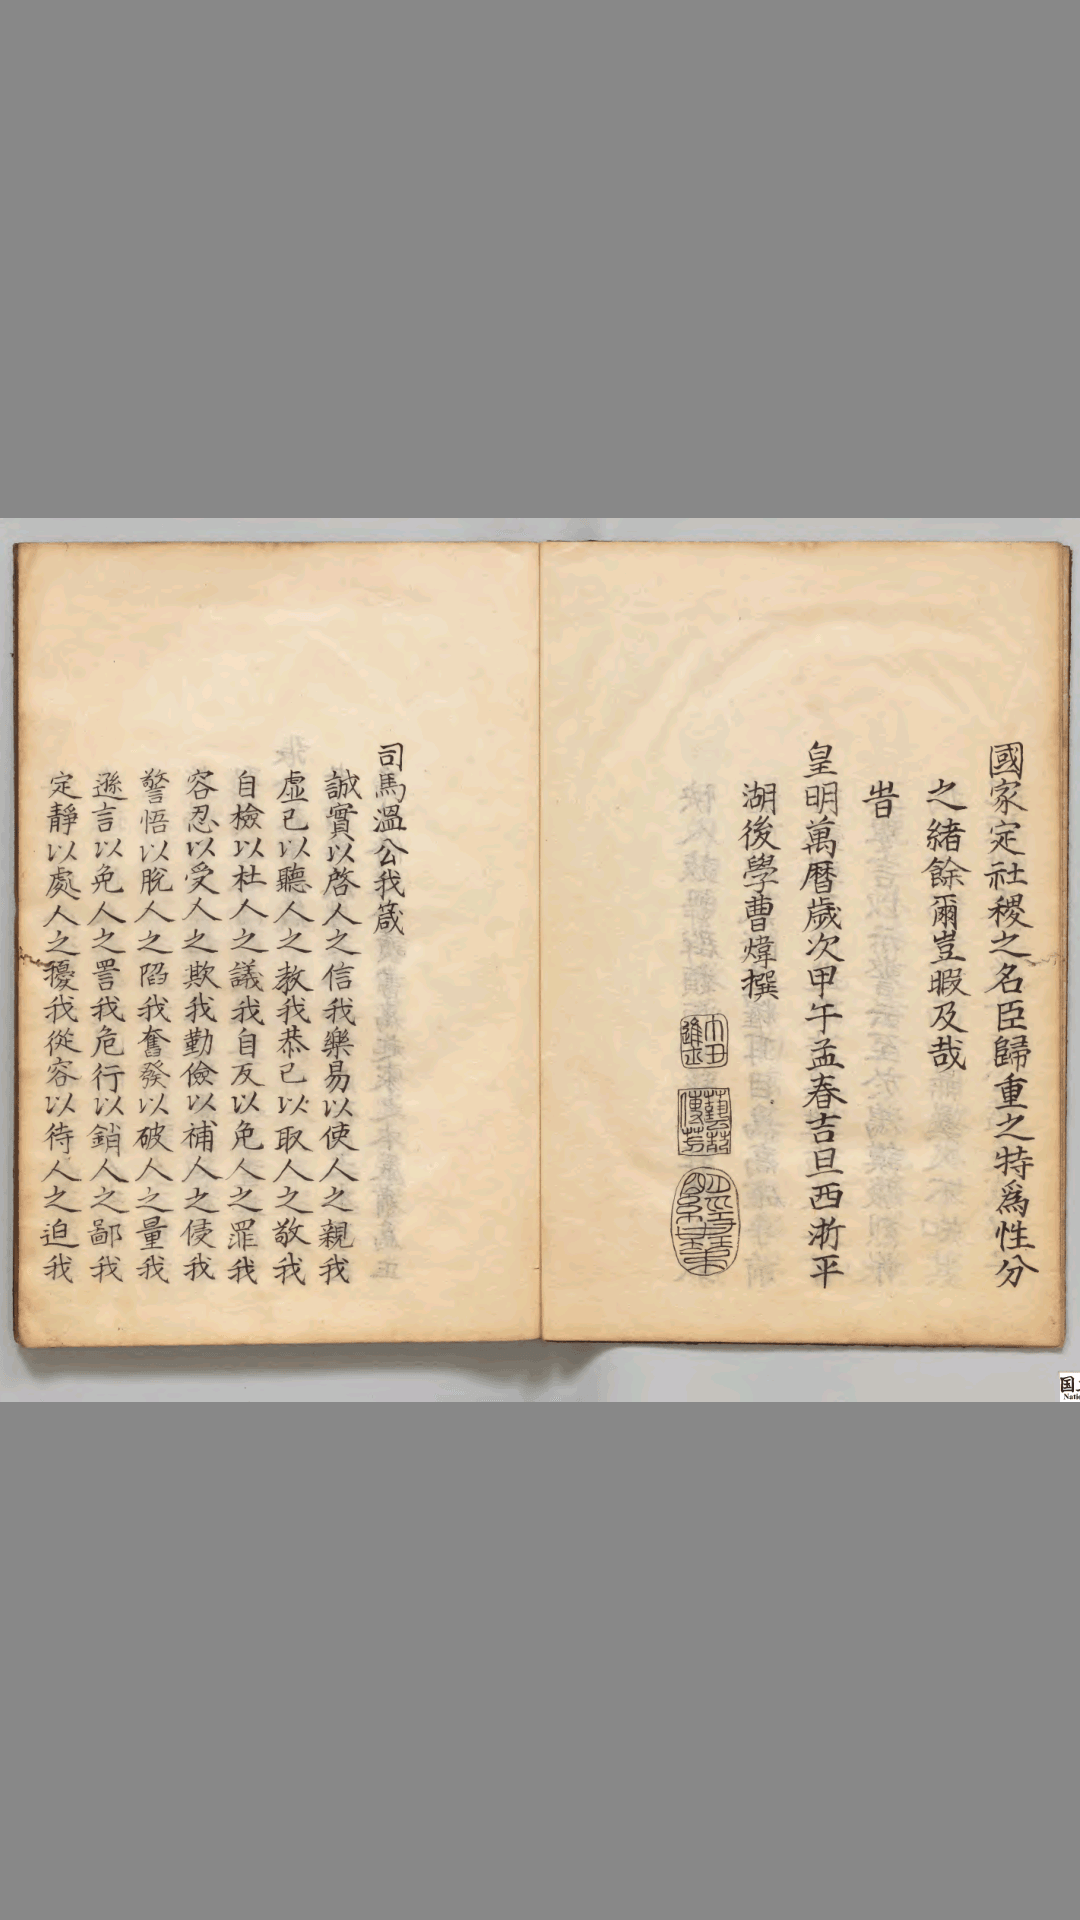 國家定社稷之名臣歸重之特爲性分
之緒餘爾豈暇及哉
旹
皇明萬曆歲次甲午孟春吉旦西浙平
湖後學曹煒撰
司馬溫公我箴
誠實以啓人之信我樂易以使人之親我
虛已以聽人之教我恭已以取人之敬我
自檢以杜人之議我自反以免人之罪我
容忍以受人之欺我勤儉以補人之侵我
警悟以脫人之陷我奮發以破人之量我
遜言以免人之詈我危行以銷人之鄙我
定靜以處人之擾我從容以待人之迫我